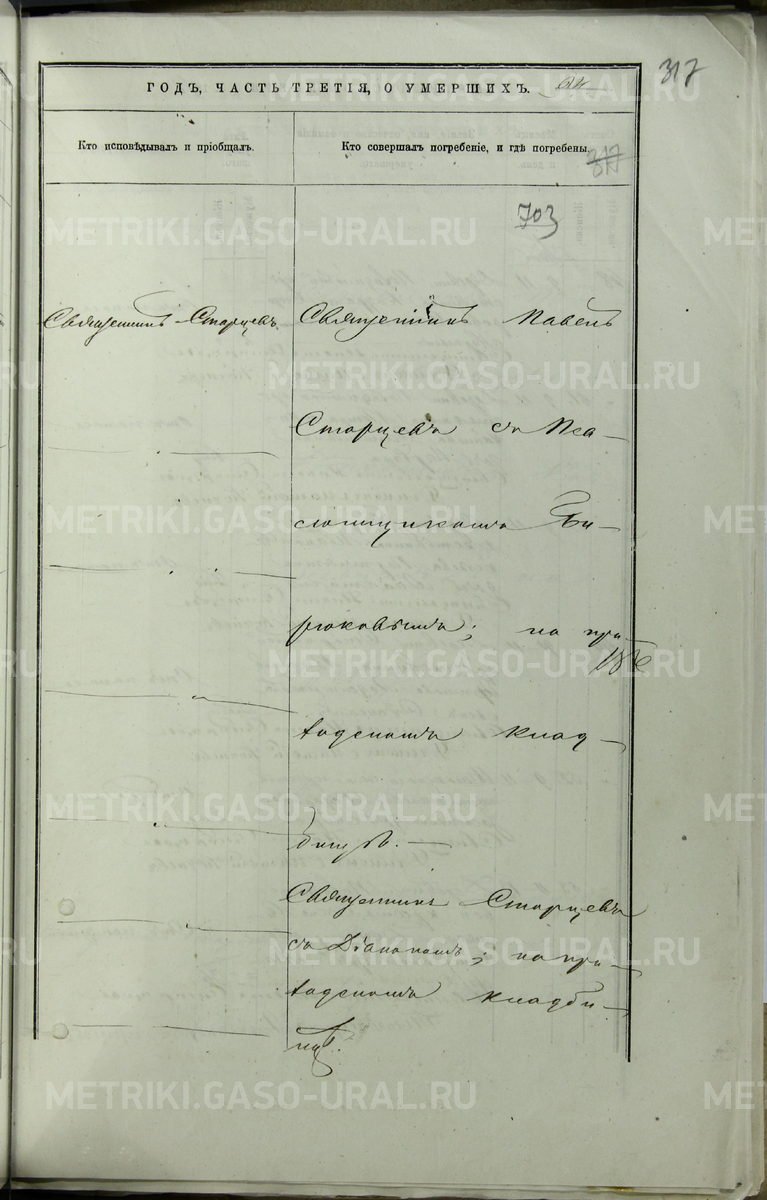 317
ГОДЪ, ЧАСТЬ ТРЕТІЯ, О УМЕРШИХЪ.
Кто исповѣдывалъ и пріобщалъ.
Кто совершалъ погребеніе, и гдѣ погребены.
317
703
Священникъ Старцевъ.
Священникъ Павелъ
Старцевъ съ Пса-
ломщикомъ Би-
рюковымъ; на при-
ходскомъ клад-
бищѣ.
Священникъ Старцевъ
съ Діакономъ; на при-
ходскомъ кладби-
щѣ.
METRIKI.GASO-URAL.RU